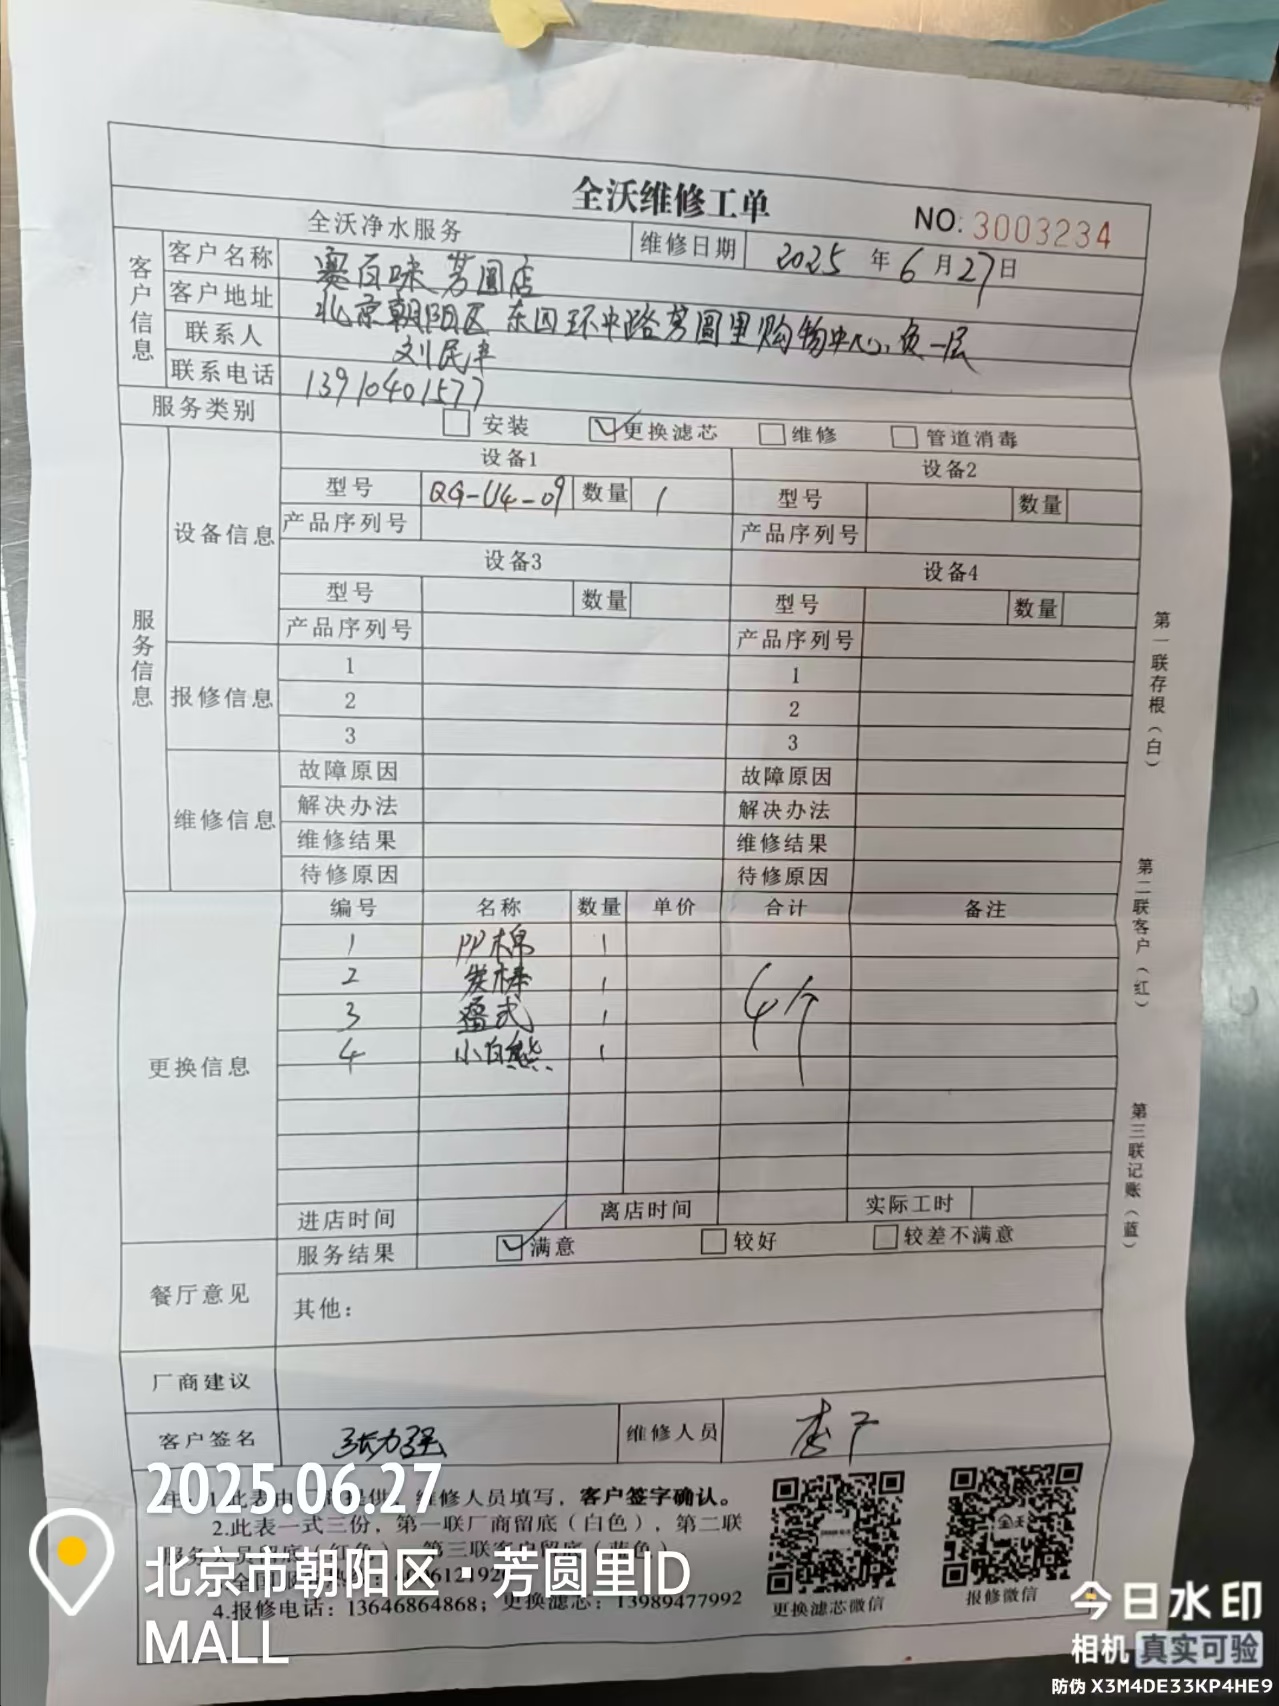 全沃维修工单
NO: 3003234
全沃净水服务 维修日期 2025 年 6 月 27 日
客户信息
客户名称 赛百味 芳圆店
客户地址 北京朝阳区 东四环中路芳圆里购物中心负一层
联系人 刘民丰
联系电话 13910401577
服务类别 安装 更换滤芯 维修 管道消毒
服务信息
设备信息
设备1 设备2
型号 QG-U4-09 数量 1 型号 数量
产品序列号 产品序列号
设备3 设备4
型号 数量 型号 数量
产品序列号 产品序列号
报修信息
1 1
2 2
3 3
维修信息
故障原因 故障原因
解决办法 解决办法
维修结果 维修结果
待修原因 待修原因
更换信息
编号 名称 数量 单价 合计 备注
1 PP棉 1
2 炭棒 1
3 1
4 小白熊 1
4个
进店时间 离店时间 实际工时
餐厅意见
服务结果 满意 较好 较差不满意
其他：
厂商建议
客户签名 张力强 维修人员
注：1.此表由 提供，维修人员填写，客户签字确认。
2.此表一式三份，第一联厂商留底（白色），第二联
服务人员留底（红色），第三联客户留底（蓝色）
4.报修电话：13646864868；更换滤芯：13989477992
更换滤芯微信
报修微信
第一联存根（白）
第二联客户（红）
第三联记账（蓝）
2025.06.27
北京市朝阳区·芳圆里ID
MALL
今日水印
相机 真实可验
防伪 X3M4DE33KP4HE9